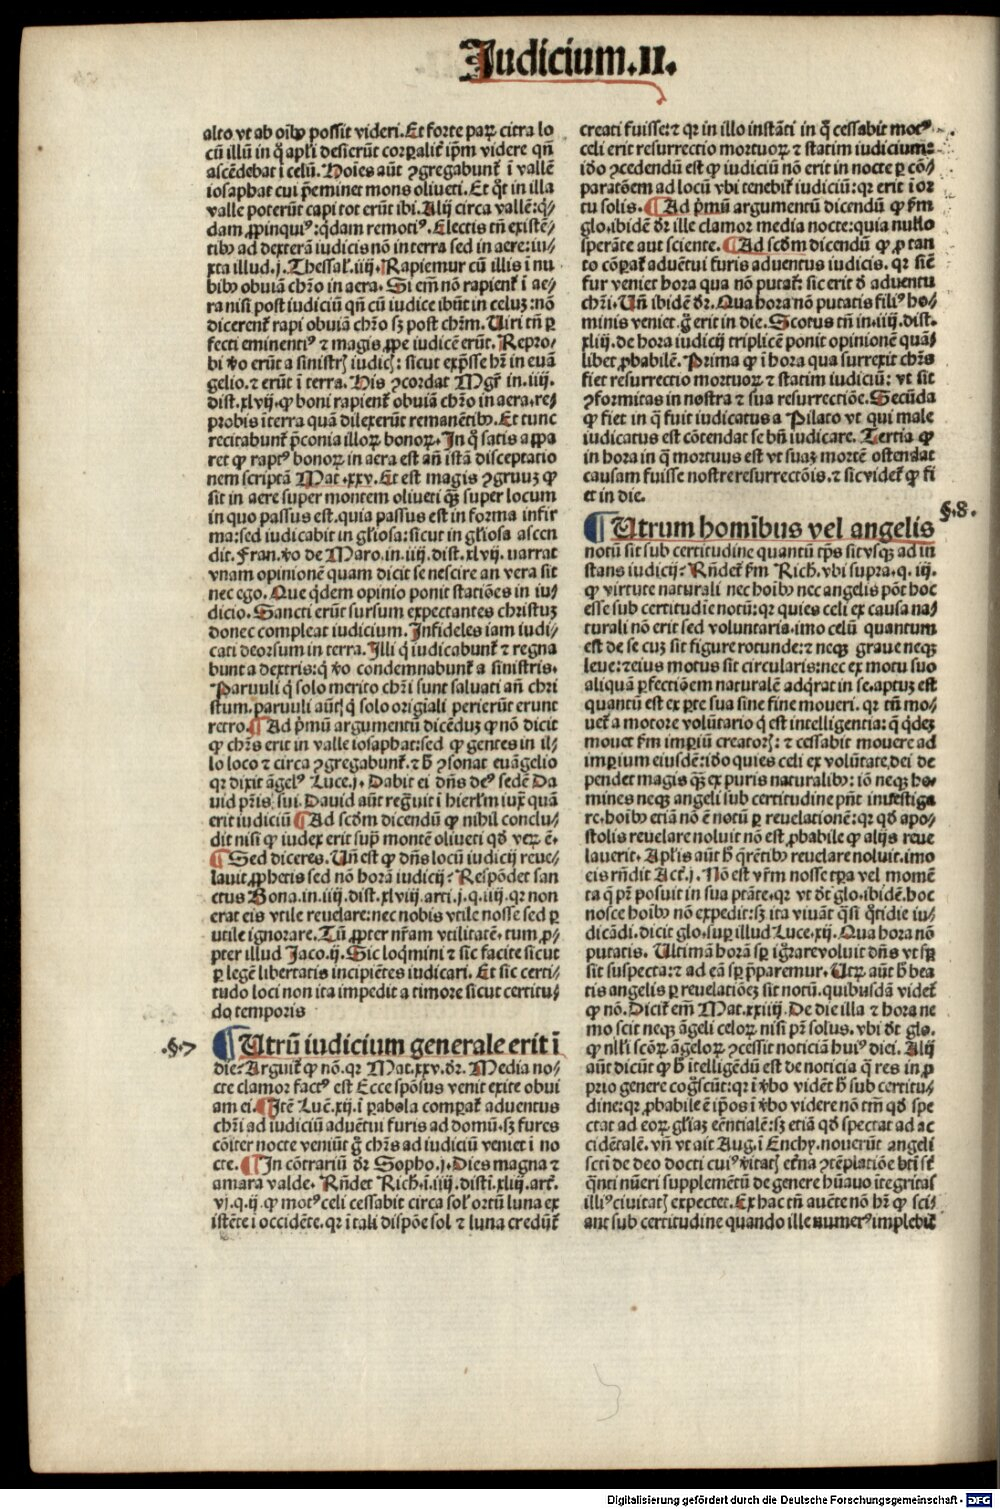 Iudicium.II.
alto vt ab oībꝰ possit videri. Et forte paꝝ citra lo
cū illū in q̄ apl̓i desierūt corꝑalit̓ ip̄m videre qn̄
ascēdebat ī celū. Hoīes aūt ꝯgregabunt̓ ī vallē
iosaphat cui p̄eminet mons oliueti. Et q̄t in illa
valle poterūt capi tot erūt ibi. Alij circa vallē: q̄-
dam ꝓpinquiꝰ: q̄dam remotiꝰ. Electis tn̄ existē-
tibꝰ ad dexterā iudicis nō in terra sed in aere: iu-
xta illud .j. Thessal̓. iiij. Rapiemur cū illis ī nu
bibꝰ obuiā chr̄o in aera. Si em̄ nō rapient̓ ī ae-
ra nisi post iudiciū qn̄ cū iudice ibūt in celuꝫ: nō
dicerent̓ rapi obuiā chr̄o sꝫ post chr̄m. Uiri tn̄ ꝑ
fecti eminentiꝰ ⁊ magis ꝓpe iudicē erūt. Repro-
bi v̄o erūt a sinistrꝭ iudicꝭ: sicut exp̄sse hr̄ in euā
gelio. ⁊ erūt ī terra. His ꝯcordat Mgr̄ in. iiij.
dist. xlvij. ꝙ boni rapient̓ obuiā chr̄o in aera, re-
probis ī terra quā dilexerūt remanētibꝰ. Et tunc
recitabunt̓ p̄conia illoꝝ bonoꝝ. In q̄ satis appa
ret ꝙ raptꝰ bonoꝝ in aera est an̄ istā disceptatio
nem scriptā Mat. xxv. Et est magis ꝯgruuꝫ ꝙ
sit in aere super montem oliueti q̄ꝫ super locum
in quo passus est. quia passus est in forma infir
ma: sed iudicabit in gl̓iosa: sicut in gl̓iosa ascen
dit. Fran. v̄o de Maro. in. iiij. dist. xlvij. narrat
vnam opinionē quam dicit se nescire an vera sit
nec ego. Que q̄dem opinio ponit statiōes in iu-
dicio. Sancti erūt sursum expectantes christuꝫ
donec compleat iudicium. Infideles iam iudi-
cati deorsum in terra. Illi q̄ iudicabunt̓ ⁊ regna
bunt a dextris: q̄ v̄o condemnabunt̓ a sinistris.
Paruuli q̄ solo merito chr̄i sunt saluati an̄ chri
stum. paruuli aūt q̄ solo origīali perierūt erunt
retro. ¶ Ad p̄mū argumentū dicēduꝫ ꝙ nō dicit
ꝙ chr̄s erit in valle iosaphat: sed ꝙ gentes in il-
lo loco ⁊ circa ꝯgregabunt̓. ⁊ h̄ ꝯsonat euāgelio
qꝛ dixit āgel̓ꝰ Luce. j. Dabit ei dn̄s deꝰ sedē Da
uid pr̄is sui. Dauid aūt regͣuit ī hierl̓m iux̄ quā
erit iudiciū ¶ Ad scd̓m dicendū ꝙ nihil conclu-
dit nisi ꝙ iudex erit sup̄ montē oliueti qd̓ veꝝ ē.
¶ Sed diceres. Un̄ est ꝙ dn̄s locū iudicij reue-
lauit ꝓphetis sed nō horā iudicij? Respōdet san
ctus Bona. in. iiij. dist. xlviij. arti. j. q. iiij. qꝛ non
erat eis vtile reuelare: nec nobis vtile nosse sed ꝑ
vtile ignorare. Tū ꝓpter nr̄am vtilitatē. tum ꝓ-
pter illud Jaco. ij. Sic loqͥmini ⁊ sic facite sicut
ꝑ legē libertatis incipiētes iudicari. Et sic certi-
tudo loci non ita impedit a timore sicut certitu-
do temporis
.§.7
¶ Utrū iudicium generale erit ī
die? Arguit̓ ꝙ nō. qꝛ Mat. xxv. dr̄. Media no-
cte clamor factꝰ est Ecce spōsus venit exite obui
am ei. ¶ Itē Luc̄. xij. ī parabola comparat̓ aduentus
chr̄i ad iudiciū aduētui furis ad domū. sꝫ fures
cōiter nocte veniūt g̊ chr̄s ad iudiciū veniet ī no
cte. ¶ In cōtrariū dr̄ Sopho. j. Dies magna ⁊
amara valde. Rn̄det Rich̄. ī. iiij. disti. xlij. art̓.
vj. q. ij. ꝙ motꝰ celi cessabit circa sol̓ ortū luna ex
istēte ī occidēte. qꝛ ī tali dispōe sol ⁊ luna credūt̓
creati fuisse: ⁊ qꝛ in illo instāti in q̄ cessabit motꝰ
celi erit resurrectio mortuoꝝ ⁊ statim iudicium:
id̓o ꝯcedendū est ꝙ iudiciū nō erit in nocte ꝑ cō-
paratōem ad locū vbi tenebit̓ iudiciū: qꝛ erit ī or
tu solis. ¶ Ad p̄mū argumentū dicendū ꝙ ẜm
glo. ibidē dr̄ ille clamor media nocte: quia nullo
sperāte aut sciente. ¶ Ad scd̓m dicendū ꝙ ꝓ tan
to cōꝑat̓ aduētui furis aduentus iudicis. qꝛ sic̄
fur veniet hora qua nō putat̓: sic erit d̓ aduentu
chr̄i. Un̄ ibidē dr̄. Qua hora nō putatis filiꝰ ho-
minis veniet. g̊ erit in die. Scotus tn̄ in. iiij. dist.
xliij. de hora iudicij triplicē ponit opinionē quā-
libet ꝓbabilē. Prima ꝙ ī hora qua surrexit chr̄s
fiet resurrectio mortuoꝝ ⁊ statim iudiciū: vt sit
ꝯformitas in nostra ⁊ sua resurrectiōe. Secūda
ꝙ fiet in q̄ fuit iudicatus a Pilato vt qui male
iudicatus est cōtendat se bn̄ iudicare. Tertia ꝙ
in hora in q̄ mortuus est vt suaꝫ mortē ostendat
causam fuisse nostre resurrectōis. ⁊ sic videt̓ ꝙ fi
et in die.
§.8.
¶ Utrum homībus vel angelis
notū sit sub certitudine quantū tp̄s sit vsqꝫ ad in
stans iudicij? Rn̄det̓ ẜm Rich̄. vbi supra. q. iij.
ꝙ virtute naturali nec hoībꝰ nec angelis pōt hoc
esse sub certitudīe notū: qꝛ quies celi ex causa na-
turali nō erit sed voluntaria. imo celū quantum
est de se cuꝫ sit figure rotunde: ⁊ neqꝫ graue neqꝫ
leue: ⁊ eius motus sit circularis: nec ex motu suo
aliquā ꝑfectiōem naturalē adq̄rat in se. aptuꝫ est
quantū est ex ꝑte sua sine fine moueri. qꝛ tn̄ mo-
uet̓ a motore volūtario q̄ est intelligentia: q̄ q̄deꝫ
mouet ẜm impiū creatorꝭ: ⁊ cessabit mouere ad
imꝑium eiusdē: id̓o quies celi ex volūtate dei de
pendet magis q̄ꝫ ex puris naturalibꝰ: iō neqꝫ ho-
mines neqꝫ angeli sub certitudine pn̄t inuestiga
re. hoībꝰ etiā nō ē notū ꝑ reuelationē: qꝛ qd̓ apo-
stolis reuelare noluit nō est ꝓbabile ꝙ alijs reue
lauerit. Apl̓is aūt h̄ q̄rētibꝰ reuelare noluit. imo
eis rn̄dit Act̓. j. Nō est vr̄m nosse tꝑa vel momē
ta q̄ pr̄ posuit in sua ptāte. qꝛ vt dt̓ glo. ibidē. hoc
nosce hoībꝰ nō expedit: sꝫ ita viuāt q̄si q̄tidie iu-
dicādi. dicit glo. suꝑ illud Luce. xij. Qua hora nō
putatis. Ultimā horā sꝑ igͦrare voluit dn̄s vt sꝑ
sit suspecta: ⁊ ad eā sꝑ p̄paremur. Utꝝ aūt h̄ bea
tis angelis ꝑ reuelatiōeꝫ sit notū. quibusdā videt̓
ꝙ nō. Dicit̓ em̄ Mat. xxiiij. De die illa ⁊ hora ne
mo scit neqꝫ āgeli celoꝝ nisi pr̄ solus. vbi dt̓ glo.
ꝙ nl̓li scōꝝ āgeloꝝ ꝯcessit noticiā huiꝰ diei. Alij
aūt dicūt ꝙ h̄ ītelligēdū est de noticia q̄ res in ꝓ
prio genere cogͦscūt: qꝛ ī v̄bo vidēt h̄ sub certitu-
dine: qꝛ ꝓbabile ē ip̄os ī v̄bo videre nō tm̄ qd̓ spe
ctat ad eoꝝ gl̓iaꝫ eēntialē: sꝫ etiā qd̓ spectat ad ac
cidētalē. vn̄ vt ait Aug. ī Enchy. nouerūt angeli
scti de deo docti cuiꝰ v̄itatꝭ et̓na ꝯtēplatiōe bt̓i st̓
q̄nti nūeri supplementū de genere hūano ītegritas
illiꝰ ciuitatꝭ expectet. Ex hac tn̄ aucte nō hr̄ ꝙ sci-
ant sub certitudine quando ille numerꝰ implebit̓
Digitalisierung gefördert durch die Deutsche Forschungsgemeinschaft - DFG